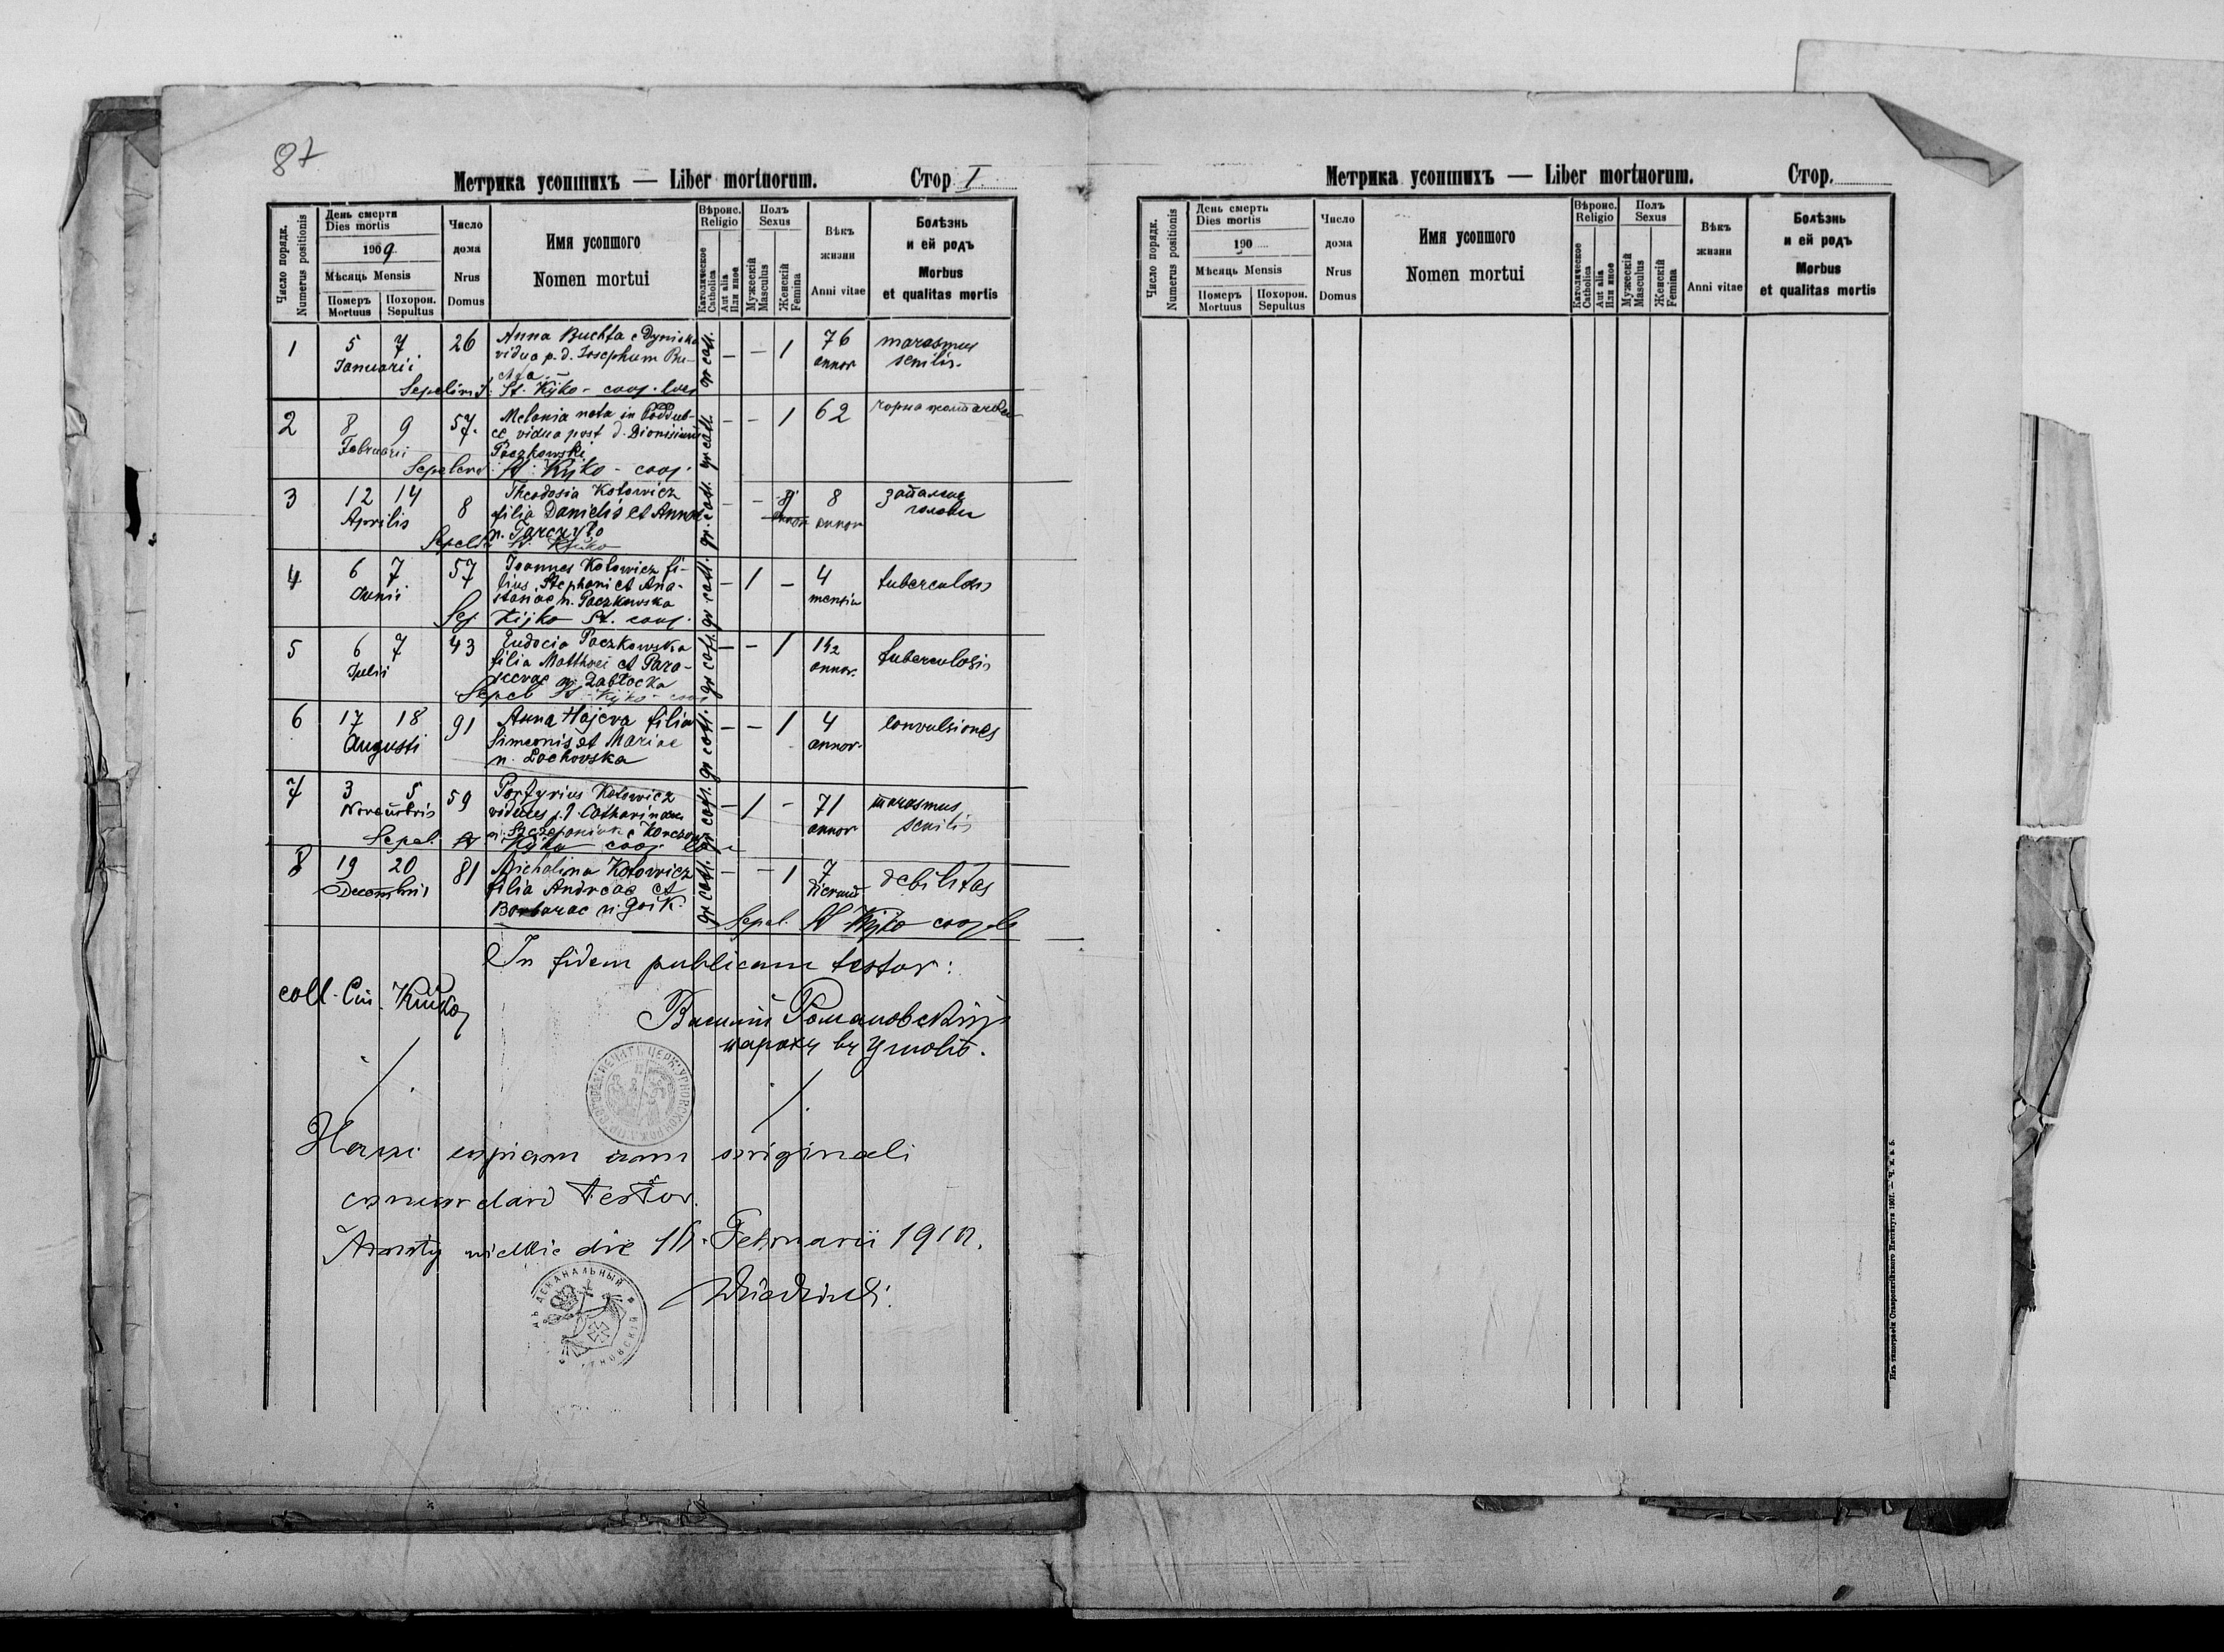 87
Метрика усопшихъ — Liber mortuorum. Стор I.
Число порядк.
Numerus positionis
День смерти
Dies mortis
1909
Мѣсяць Mensis
Померъ
Mortuus
Похорон.
Sepultus
Число
дома
Nrus
Domus
Имя усопшого
Nomen mortui
Вѣроис.
Religio
Католическое
Catholica
Aut alia
Или иное
Полъ
Sexus
Мужескій
Masculus
Женскій
Femina
Вѣкъ
жизни
Anni vitae
Болѣзнь
и ей родъ
Morbus
et qualitas mortis
1 5 7 Januarii 26
Anna Buchta e
vidua p. d. Josephum Bu-
chta
gr. cath. — — 1 76 annor marasmus
senilis.
St. Kijko - coop. loci
2 8 9 Februarii 57.
Melania nata in Poddub-
ce vidua post d. Dionisium
Paczkowski
gr cath. — — 1 62
St. Kijko - coop.
3 12 14 Aprilis 8
Theodosia Kotowicz
filia Danielis et Annae
n. Tarczyło
gr. cath. — — 8 annor запалене
голови
St. Kijko
4 6 7 Junii 57
Joannes Kotowicz fi-
lius Stephani et Ana-
stasiae n. Paczkowska
gr cath. — 1 — 4 mensiu tuberculosis
Sep. Kijko St. coop.
5 6 7 Julii 43
Eudocia Paczkowska
filia Matthaei et Para-
scevae n. Zabłocka
gr cath. — — 1 annor. tuberculosis
Sepel St Kijko - coop
6 17 18 Augusti 91
Anna Hajeva filia
Simeonis et Mariae
n. Lachovska
gr cath. — — 1 4 annor convulsiones
7 3 5 Novembris 59
Porfyrius Kotowicz
viduus p. d. Catharinam
gr cath. — 1 — 71 annor marasmus
senilis
Sepel. St Kijko coop.
8 19 20 Decembris 81
Michalina Kotowicz
filia Andreae et
Barbarae n. Goik.
gr cath. — — 1 7 dierum debilitas
Sepel. St Kijko coop
In fidem publicam testor:
coll. Кийко
Василій Романовскій
парохъ въ Угновѣ.
Hanc copiam cum originali
concordare testor.
wielkie die 16. Februarii 1910.
ДЕКАНАЛЬНЫЙ
Метрика усопшихъ — Liber mortuorum. Стор.
Число порядк.
Numerus positionis
День смерти
Dies mortis
190
Мѣсяць Mensis
Померъ
Mortuus
Похорон.
Sepultus
Число
дома
Nrus
Domus
Имя усопшого
Nomen mortui
Вѣроис.
Religio
Католическое
Catholica
Aut alia
Или иное
Полъ
Sexus
Мужескій
Masculus
Женскій
Femina
Вѣкъ
жизни
Anni vitae
Болѣзнь
и ей родъ
Morbus
et qualitas mortis
Изъ типографіи Ставропигійского Института 1907. — Ч. ж. в 5.